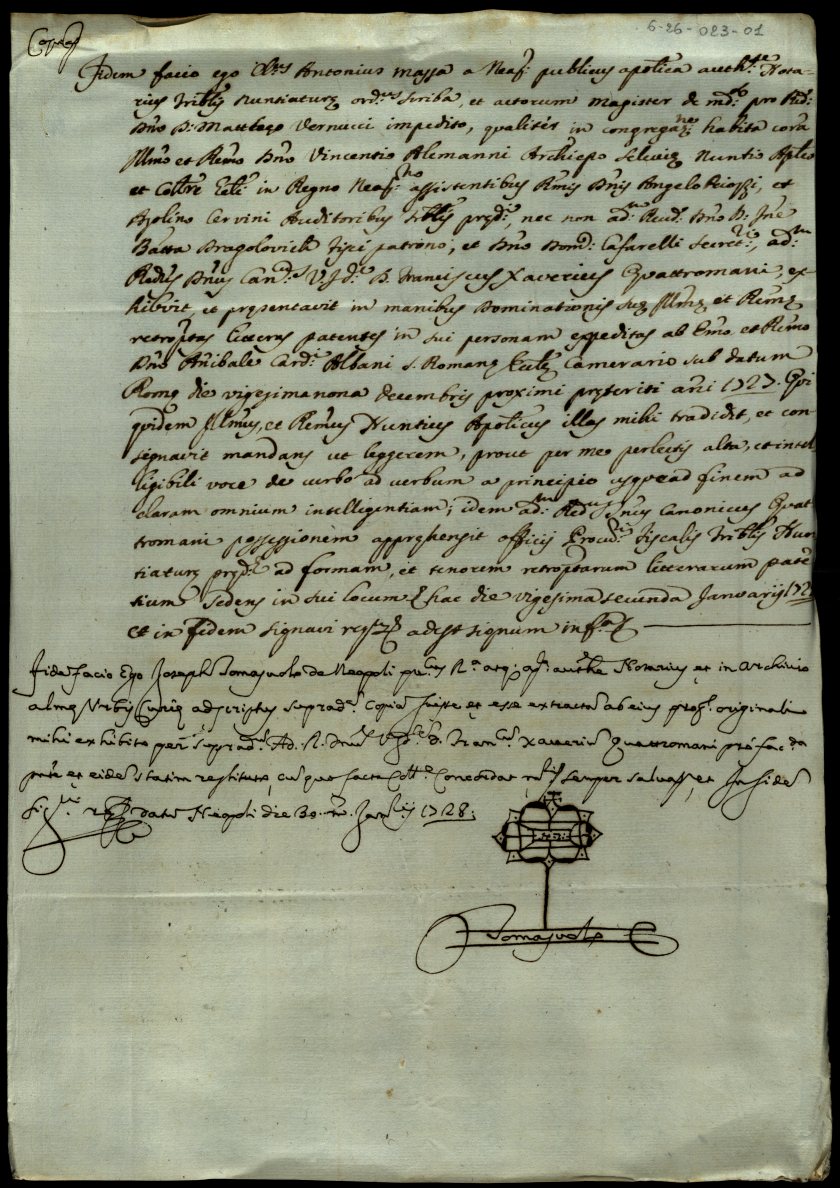 6-26-023-01
Copia
Fidem facio ego Cl:us Antonius Massa a Neap: publicus aplica auth:te Nota-
rius Triblis Nuntiaturę ord:us scriba, et actorum Magister de md:o pro Rd:
Dno D: Mattheo Vernucci impedito, qualiter in congregaz:ne habita corã
Illmo et Remo Dno Vincentio Alemanni Archiepo Seleuię Nuntio Aplco
et Collre Eccl: in Regno Neap:no assistentibus Rmis Dnis Angelo et
Azolino Cervini Auditoribus Triblis pręd:i, nec non ad:m Reud: Dno D: Jne
Batta Dragolovich Fisci patrono, et Dno Dom: Cafarelli Secret:rio, ad:m
Redus Dnus Can:cus V.J.D: D. Franciscus Xaverius Quattromani, ex-
hibuit, et pręsentavit in manibus Dominationis suę Illmę et Remę
retroptas litteras patentes in sui personam expeditas ab Emo, et Remo
Dno Anibale Card:li Albani S. Romanę Ecclę Camerario sub datum
Romę die vigesimanona decembris proximi pręteriti anni 1727. Qui
quidem Illmus, et Remus Nuntius Aplicus illas mihi tradidit, et con-
signavit mandans ut leggerem, prout per me perlectis alta, et intel-
ligibili voce de verbo ad verbum a principio usque ad finem ad
claram omnium intelligentiam, idem ad:m Red:us Dnus Canonicus Quat-
tromani possessionem apprehensit officij Procu:ris Fiscalis Triblis Nun-
tiaturę pręd:ę ad formam, et tenorem retroptarum litterarum paten-
tium sedens in sui locum hac die vigesima secunda Januarij 172
et in fidem signavi reqs: adest signum
Fidẽ facio Ego Joseph Tomasuolo de Neapoli pu:cus R:a atq: ap:ca authte Notarius et in archivio
almę Urbis Curię adscriptus suprad:m Copiã fuisse et esse extractã ab eius prop:o originali
mihi exhibito per suprad:m Ad. R. Dnũ V.J.D: D. Fran:cus Xaveriũ Quattromani
pñte et eidẽ statim restituto, cũ quo facta Coll:e Concordat, semper salva et In fidẽ
sig:vi datũ Neapoli die 30. m. Jan:rij 1728:
Tomasuolo